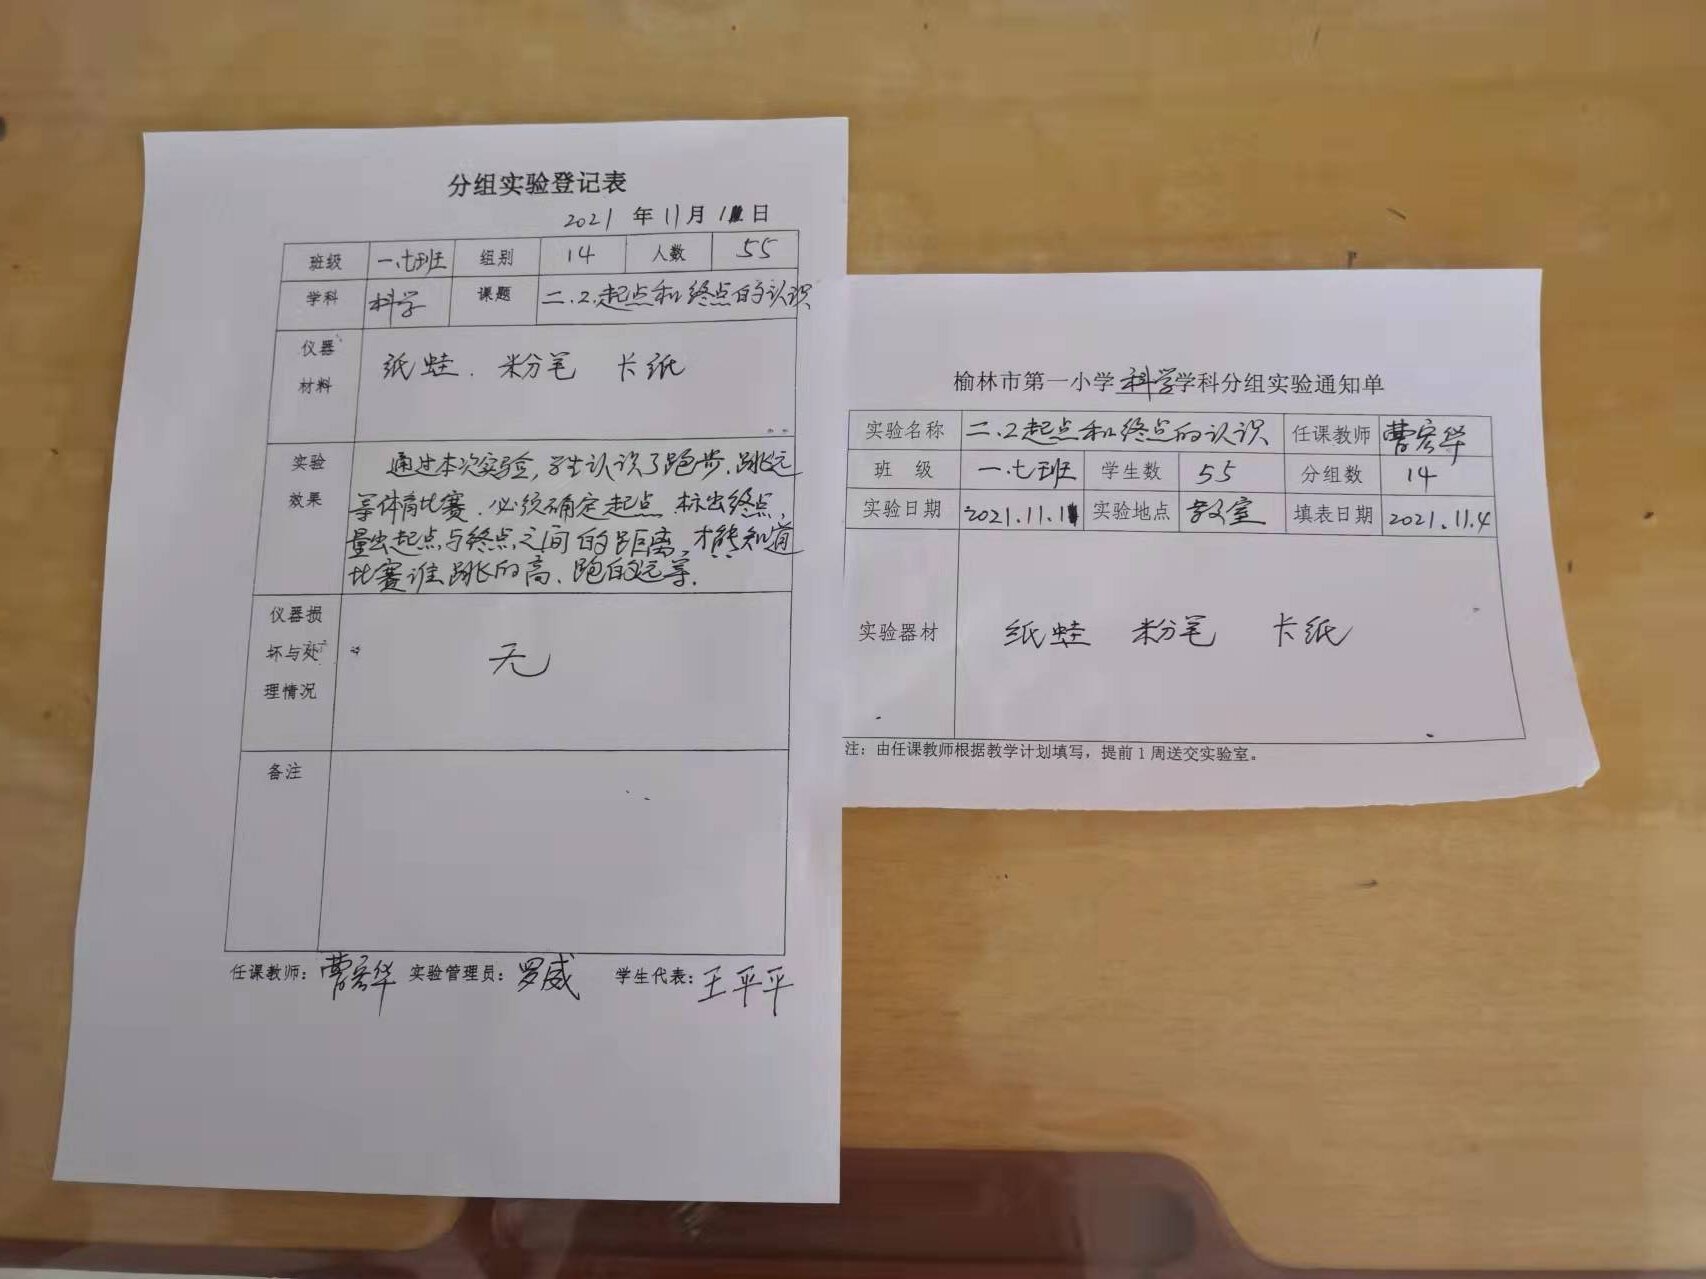 分组实验登记表
2021 年 11 月 11 日
班级 一.七班 组别 14 人数 55
学科 科学 课题 二.2.起点和终点的认识
仪器 材料 纸蛙. 粉笔 卡纸
实验 效果 通过本次实验,学生认识了跑步.跳远
等体育比赛.必须确定起点 标出终点,
量出起点与终点之间的距离,才能知道
比赛谁跳的高、跑的远等.
仪器损
坏与处 无
理情况
备注
任课教师: 曹宏华 实验管理员: 罗威 学生代表: 王平平
榆林市第一小学 科学 学科分组实验通知单
实验名称 二.2起点和终点的认识 任课教师 曹宏华
班 级 一.七班 学生数 55 分组数 14
实验日期 2021.11.11 实验地点 教室 填表日期 2021.11.4
实验器材 纸蛙 粉笔 卡纸
注: 由任课教师根据教学计划填写，提前 1 周送交实验室。